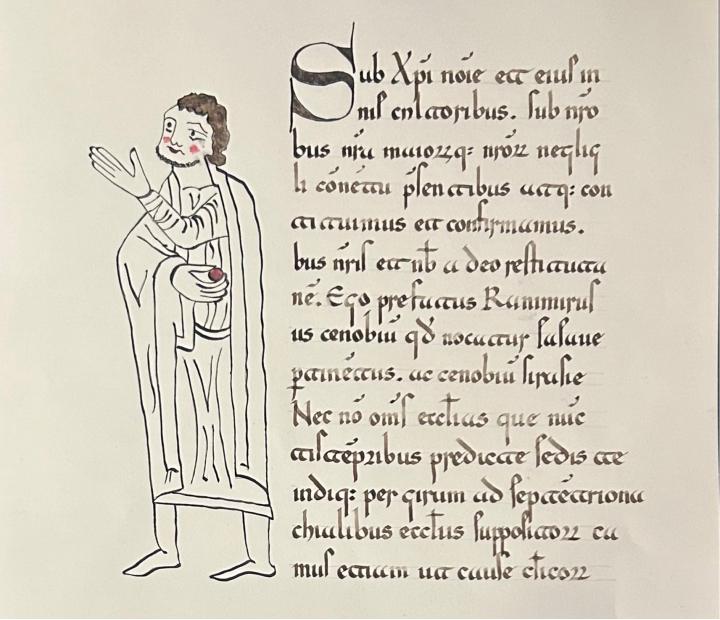 Sub Xp̄i nōie et eius in
nis cultoribus. Sub nr̄o
bus nr̄a maioꝝq: nr̄oꝝ neglig
li cōnētu p̄sentibus atq: con
stituimus et confirmamus.
bus nr̄is et nb̄ a deo restituta
nē. Ego prefatus Ranimirus
us cenobiū qd̄ uocatur sasaue
ꝑtinētus. ac cenobiū sirasie
Nec nō om̄s ecclias que nūc
predicte sedis
indiq: per girum ad septētriona
chialibus ecclis suppositoꝝ ca
mus etiam ut cause cl̄icoꝝ